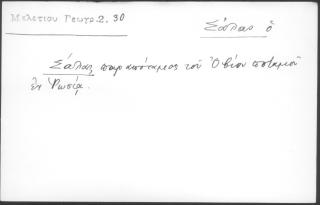 Μελετίου Γεωγρ. 2. 30
Σάλας ὁ
Σάλας, παραπόταμος τοῦ Ὀβίου ποταμοῦ
ἐν Ῥωσίᾳ.